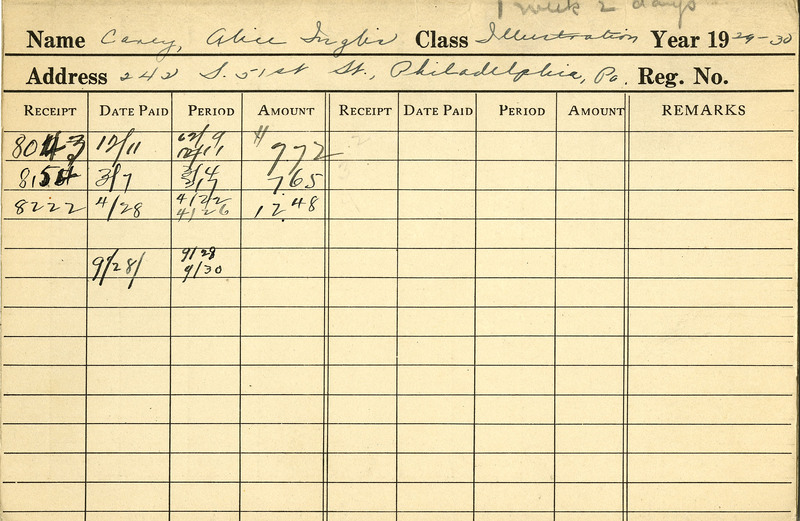 1 week 2 days
Name Carey, Alice Inglis Class Illustration Year 1929-30
Address 242 S. 51st St., Philadelphia, Pa. Reg. No.
RECEIPT DATE PAID PERIOD AMOUNT RECEIPT DATE PAID PERIOD AMOUNT REMARKS
8043 12/11 12/9 12/11 772
8154 3/7 3/4 3/7 765
8222 4/28 4/22 4/26 12.48
9/28/ 9/28 9/30